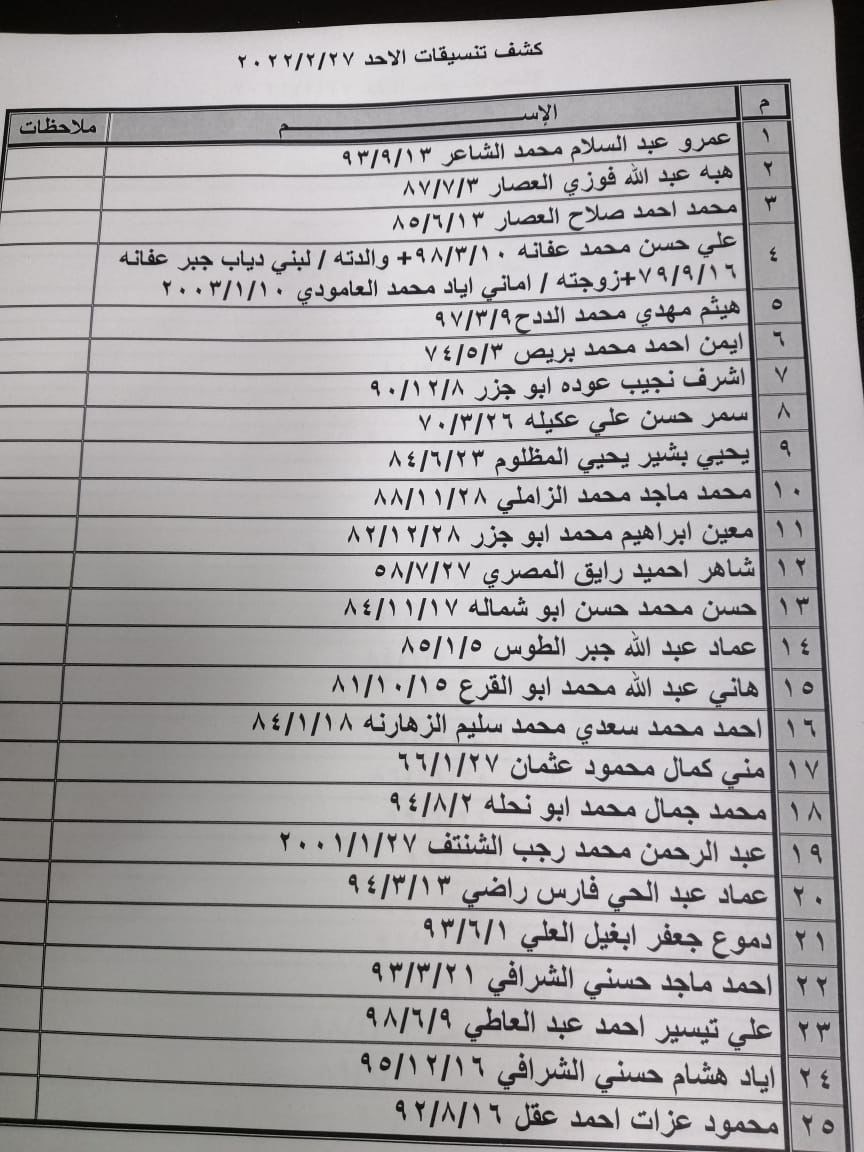 كشف تنسيقات الاحد ٢٠٢٢/٢/٢٧
م الإســـــــم ملاحظات
١ عمرو عبد السلام محمد الشاعر ٩٣/٩/١٣
٢ هبه عبد الله فوزي العصار ٨٧/٧/٣
٣ محمد احمد صلاح العصار ٨٥/٦/١٣
٤ علي حسن محمد عفانه ٩٨/٣/١٠+ والدته / لبني دياب جبر عفانه
٧٩/٩/١٦+زوجته / اماني اياد محمد العامودي ٢٠٠٣/١/١٠
٥ هيثم مهدي محمد الددح٩٧/٣/٩
٦ ايمن احمد محمد بريص ٧٤/٥/٣
٧ اشرف نجيب عوده ابو جزر ٩٠/١٢/٨
٨ سمر حسن علي عكيله ٧٠/٣/٢٦
٩ يحيي بشير يحيي المظلوم ٨٤/٦/٢٣
١٠ محمد ماجد محمد الزاملي ٨٨/١١/٢٨
١١ معين ابراهيم محمد ابو جزر ٨٢/١٢/٢٨
١٢ شاهر احميد رايق المصري ٥٨/٧/٢٧
١٣ حسن محمد حسن ابو شماله ٨٤/١١/١٧
١٤ عماد عبد الله جبر الطوس ٨٥/١/٥
١٥ هاني عبد الله محمد ابو القرع ٨١/١٠/١٥
١٦ احمد محمد سعدي محمد سليم الزهارنه ٨٤/١/١٨
١٧ مني كمال محمود عثمان ٦٦/١/٢٧
١٨ محمد جمال محمد ابو نحله ٩٤/٨/٢
١٩ عبد الرحمن محمد رجب الشنتف ٢٠٠١/١/٢٧
٢٠ عماد عبد الحي فارس راضي ٩٤/٣/١٣
٢١ دموع جعفر ابغيل العلي ٩٣/٦/١
٢٢ احمد ماجد حسني الشرافي ٩٣/٣/٢١
٢٣ علي تيسير احمد عبد العاطي ٩٨/٦/٩
٢٤ اياد هشام حسني الشرافي ٩٥/١٢/١٦
٢٥ محمود عزات احمد عقل ٩٢/٨/١٦